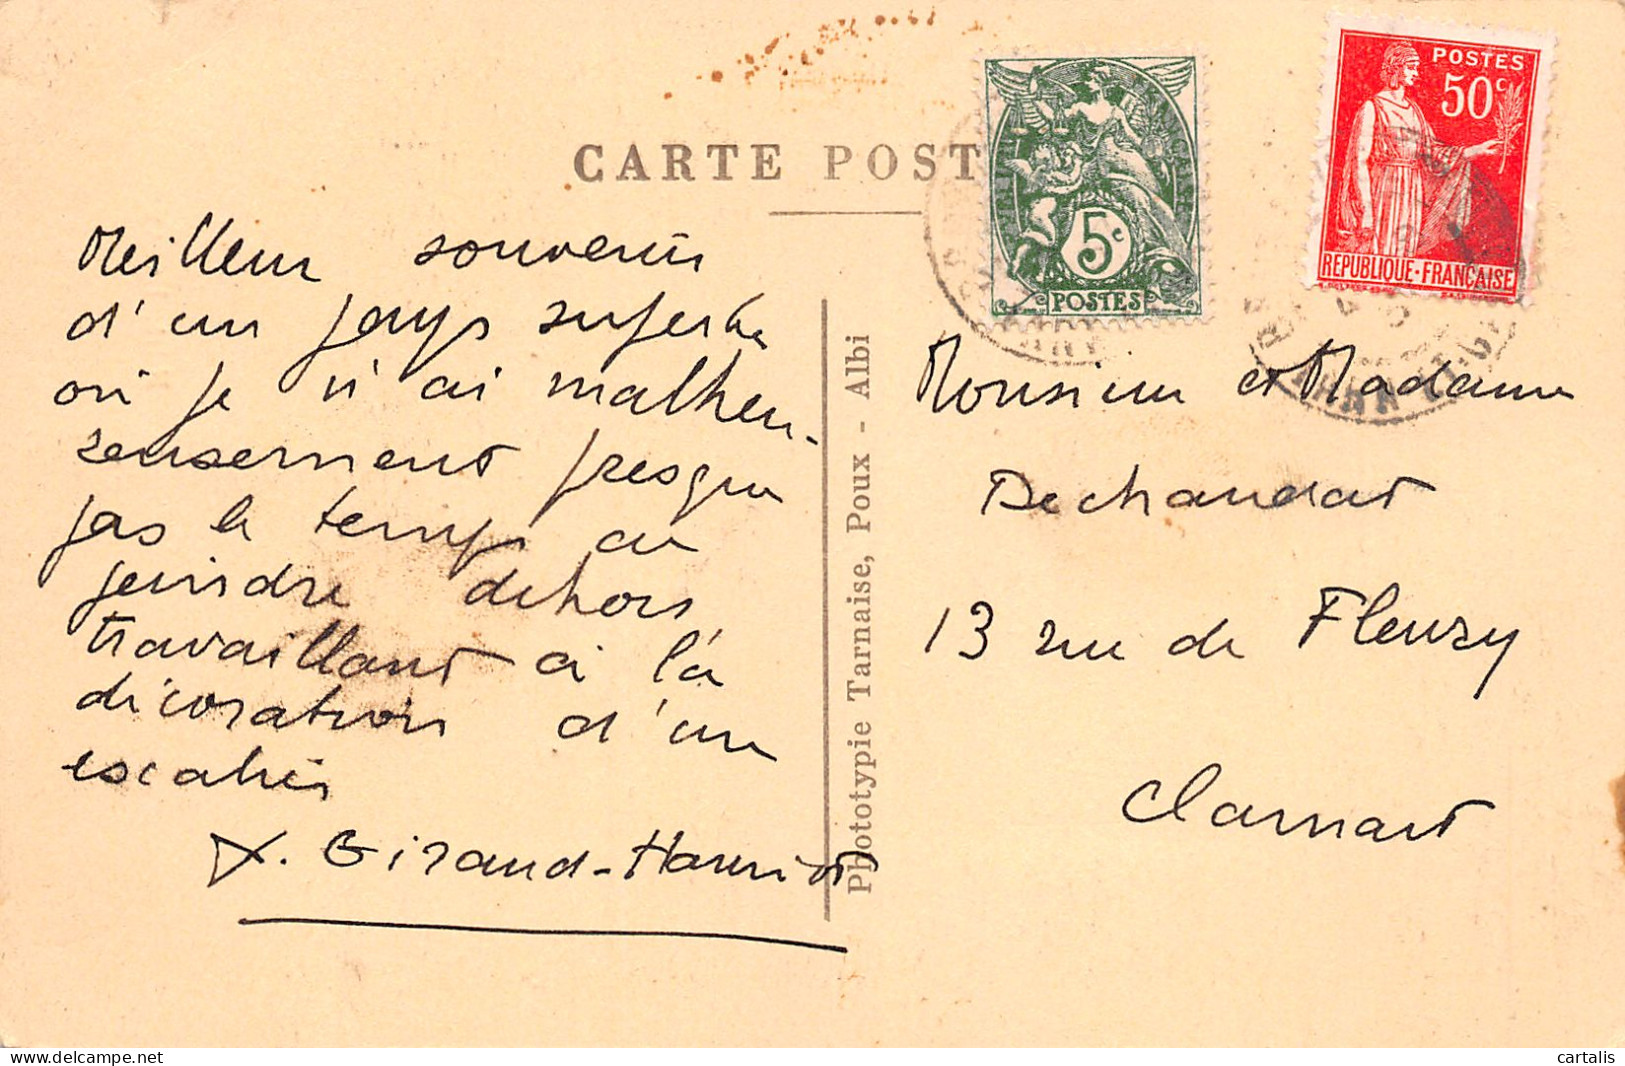 CARTE POST
5c
POSTES
POSTES
50c
REPUBLIQUE·FRANÇAISE
Meilleur souvenir
d'un pays superbe
où je n'ai malheu-
reusement presque
pas le temps de
peindre dehors
travaillant à la
décoration d'un
escalier
Giraud-
Phototypie Tarnaise, Poux - Albi
Monsieur et Madame
Dechaudat
13 rue de Fleury
Clamart
cartalis